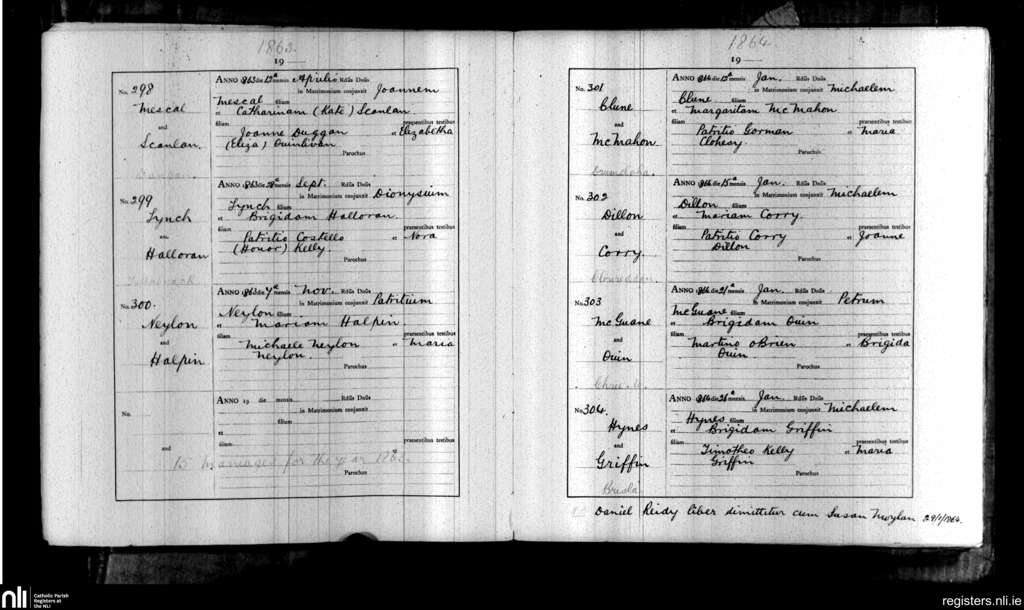 1863.
19
No. 298
Mescal
and
Scanlan.
ANNO 1863 die 12ᵃ mensis Aprilis Rdūs Dnūs
in Matrimonium conjunxit Joannem
Mescal filium
et Catharinam (Kate) Scanlan.
filium praesentibus testibus
Joanne Duggan et Elizabetha
(Eliza) Quinlivan
Parochus
No. 299
Lynch
and
Halloran
ANNO 1863 die mensis Sept. Rdūs Dnūs
in Matrimonium conjunxit Dionysium
Lynch filium
et Brigidam Halloran.
filium praesentibus testibus
Patritio Costello et Nora
(Honor) Kelly.
Parochus
No. 300.
Neylon
and
Halpin
ANNO 1863 die 7ᵃ mensis Nov. Rdūs Dnūs
in Matrimonium conjunxit Patritium
Neylon filium
et Mariam Halpin
filium praesentibus testibus
Michaele Neylon et Maria
Neylon.
Parochus
No.
and
ANNO 19 die mensis Rdūs Dnūs
in Matrimonium conjunxit
filium
et
filium praesentibus testibus
15 marriages for the year 1863.
Parochus
1864
19
No. 301
Clune
and
McMahon.
ANNO 1864 die 12ᵃ mensis Jan. Rdūs Dnūs
in Matrimonium conjunxit Michaelem
Clune filium
et Margaritam McMahon
filium praesentibus testibus
Patritio Gorman et Maria
Clohesy.
Parochus
No. 302
Dillon
and
Corry.
ANNO 1864 die 15ᵃ mensis Jan. Rdūs Dnūs
in Matrimonium conjunxit Michaelem
Dillon filium
et Mariam Corry.
filium praesentibus testibus
Patritio Corry et Joanne
Dillon
Parochus
No. 303
McGuane
and
Quin
ANNO 1864 die 21ᵃ mensis Jan. Rdūs Dnūs
in Matrimonium conjunxit Petrum
McGuane filium
et Brigidam Quin
filium praesentibus testibus
Martino O'Brien et Brigida
Quin.
Parochus
No. 304.
Hynes
and
Griffin
ANNO 1864 die 26ᵃ mensis Jan. Rdūs Dnūs
in Matrimonium conjunxit Michaelem
Hynes filium
et Brigidam Griffin
filium praesentibus testibus
Timotheo Kelly et Maria
Griffin
Parochus
Daniel Reidy liber dimittitur cum Susan Moylan 29/1/1864.
nli Catholic Parish
Registers at
the NLI
registers.nli.ie